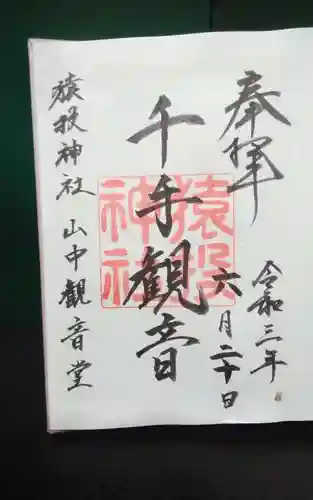 奉拝
令和三年
六月二十日
千手觀音
猿投神社
猿投神社 山中觀音堂